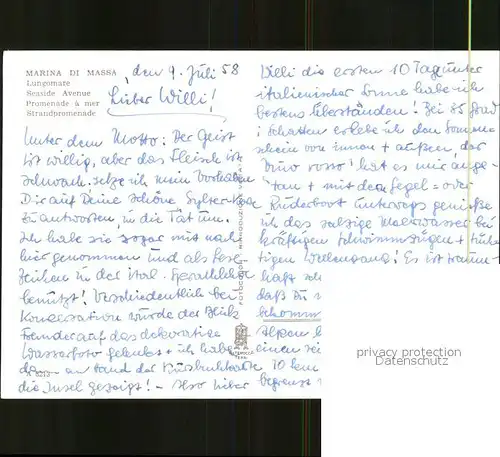 MARINA DI MASSA
Lungomare
Seaside Avenue
Promenade à mer
Strandpromenade
, den 9. Juli 58
Lieber Willi!
Unter dem Motto: Der Geist
ist willig, aber das Fleisch ist
schwach, setze ich mein Vorhaben
Dir auf Deine schöne Sylter
zu antworten, in die Tat um.
Ich habe sie sogar mit nach
hier genommen und als Lese-
zeichen in der ital. Sprachlehre
benützt! Verschiedentlich bei
Konversation wurde der Blick
Fremder auf das dekorative
Wasserfoto gelenkt + ich habe
dann an Hand der
die Insel gezeigt! – Also lieber
Willi die ersten 10 Tag unter
italienischer Sonne habe ich
bestens überstanden! Bei 35 Grad
i. Schatten erlebe ich den Sonnen-
schein von innen + außen, der
Vino rosso hat es mir ange-
tan + mit dem Segel- oder
Ruderboot unterwegs genieße
ich das salzige Meerwasser bei
kräftigen Schwimmzügen + tüch-
tigen Wellengang! Es ist traum-
haft
daß Du
bekomm
Alpen
einen
10
begrenzt
privacy protection
Datenschutz